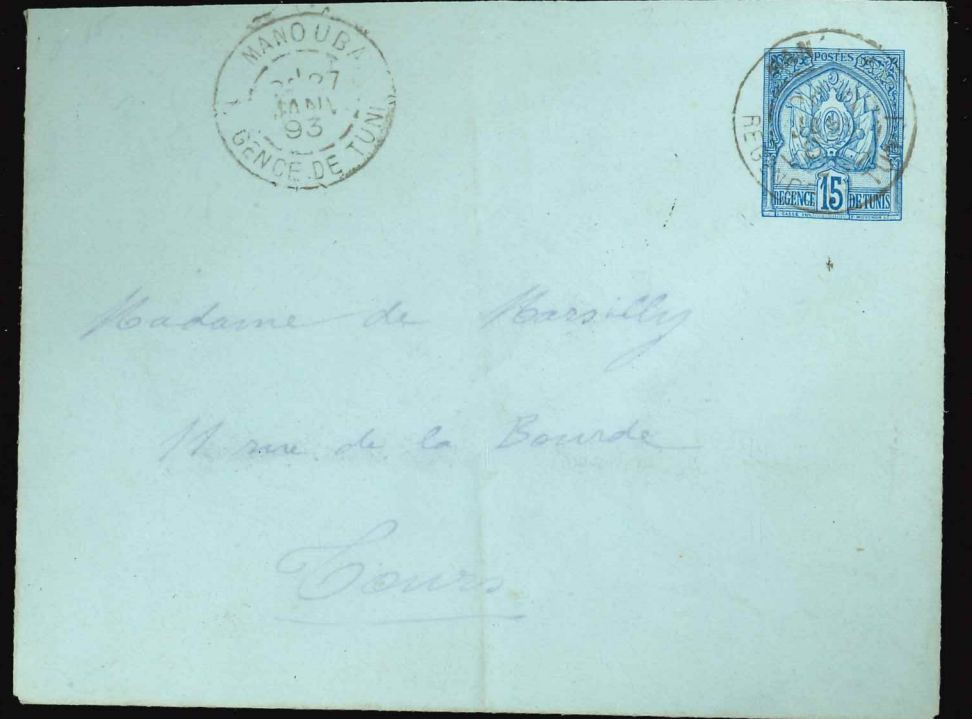 MANOUBA
27
JANV
93
GENCE DE TUNI
POSTES
REGENCE 15 DE TUNIS
MAN
REG
TUN
Madame de Marsilly
11 rue de la Bourde
Tours